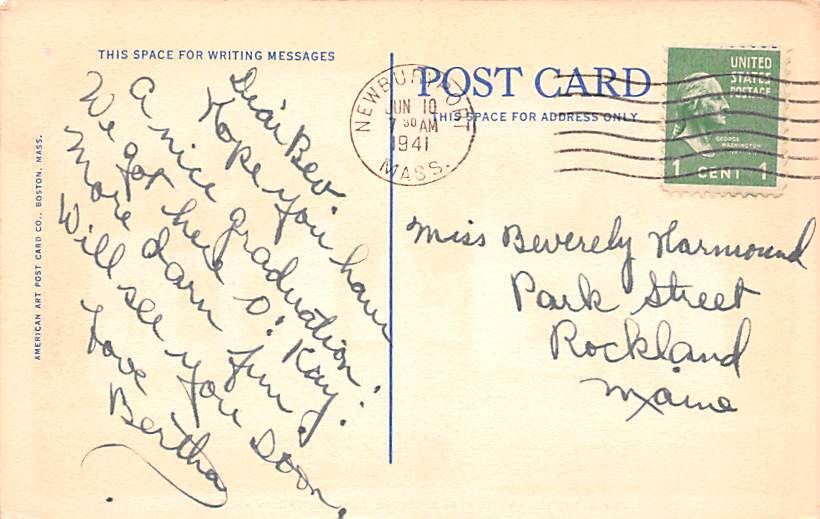 THIS SPACE FOR WRITING MESSAGES
Dear Bev.
Hope you have
A nice graduation.
We got here O. Kay.
More darn fun!
Will see you soon,
Love
Bertha
AMERICAN ART POST CARD CO., BOSTON, MASS.
POST CARD
THIS SPACE FOR ADDRESS ONLY
NEWBURYPORT
JUN 10
7 30 AM
1941
MASS.
UNITED
STATES
POSTAGE
GEORGE
WASHINGTON
1 CENT 1
Miss Beverely Harmound
Park Street
Rockland
Maine